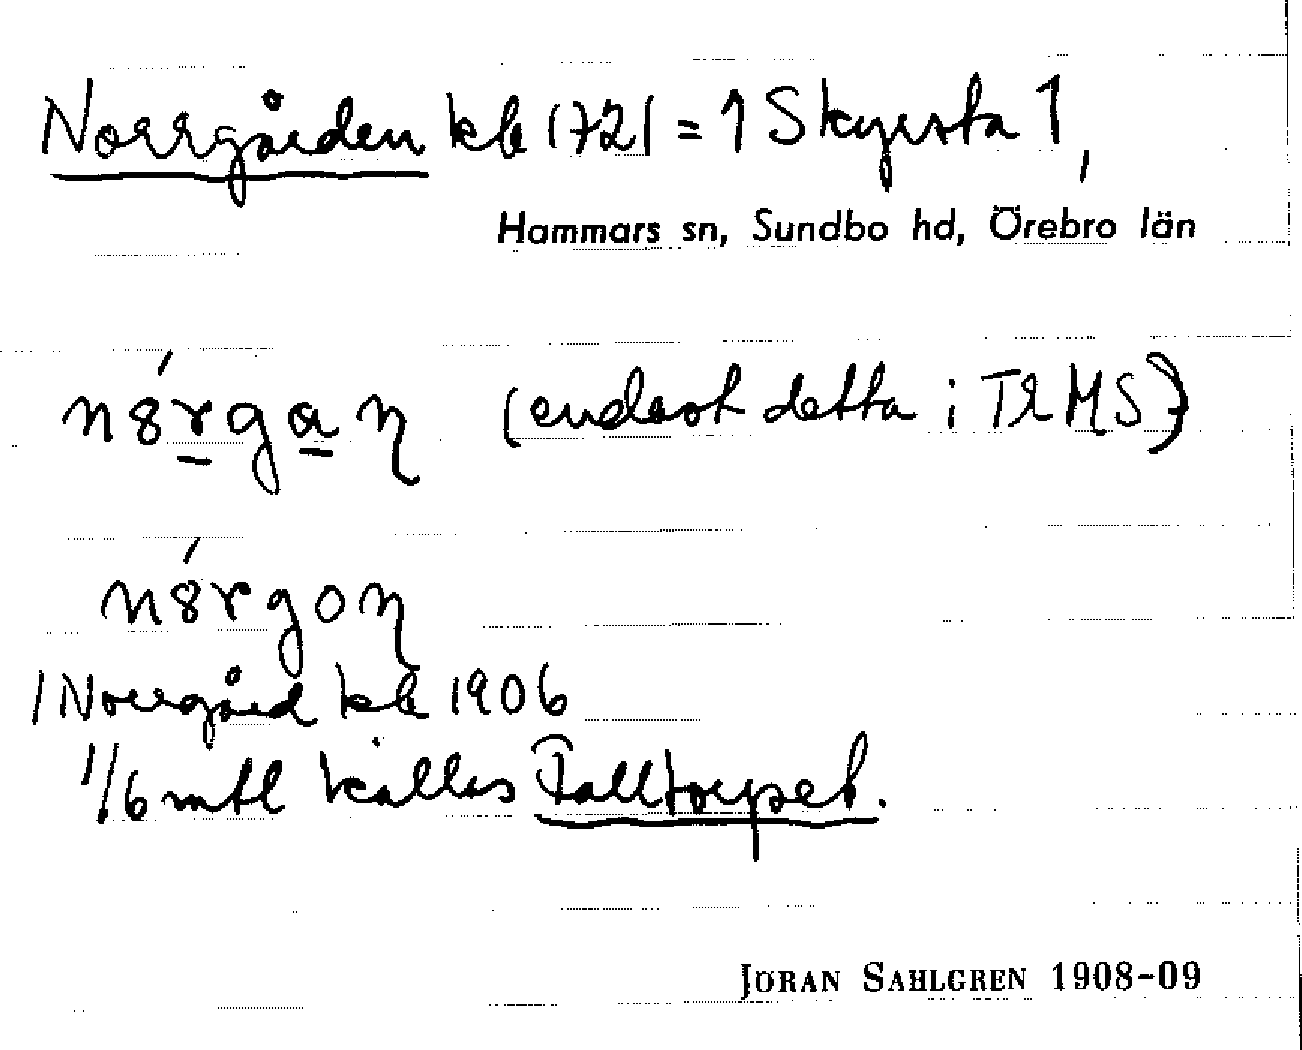 Norrgården kb 1721 = 1 Skyrsta 1,
Hammars sn, Sundbo hd, Örebro län
n8́rgaŋ (endast detta i TRMS)
n8́rgoŋ
1 Norrgård kb 1906
1/6 mtl kallas Falltorpet.
JÖRAN SAHLGREN 1908-09